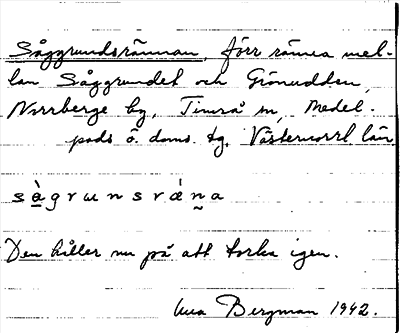 Såggrundsrännan, förr ränna mel-
lan Såggrundet och Grönudden,
Norrberge by, Timrå sn, Medel-
pads ö. doms. tg, Västernorrl län
sàgrunsrǽna
Den håller nu på att torka igen.
Bergman 1942.